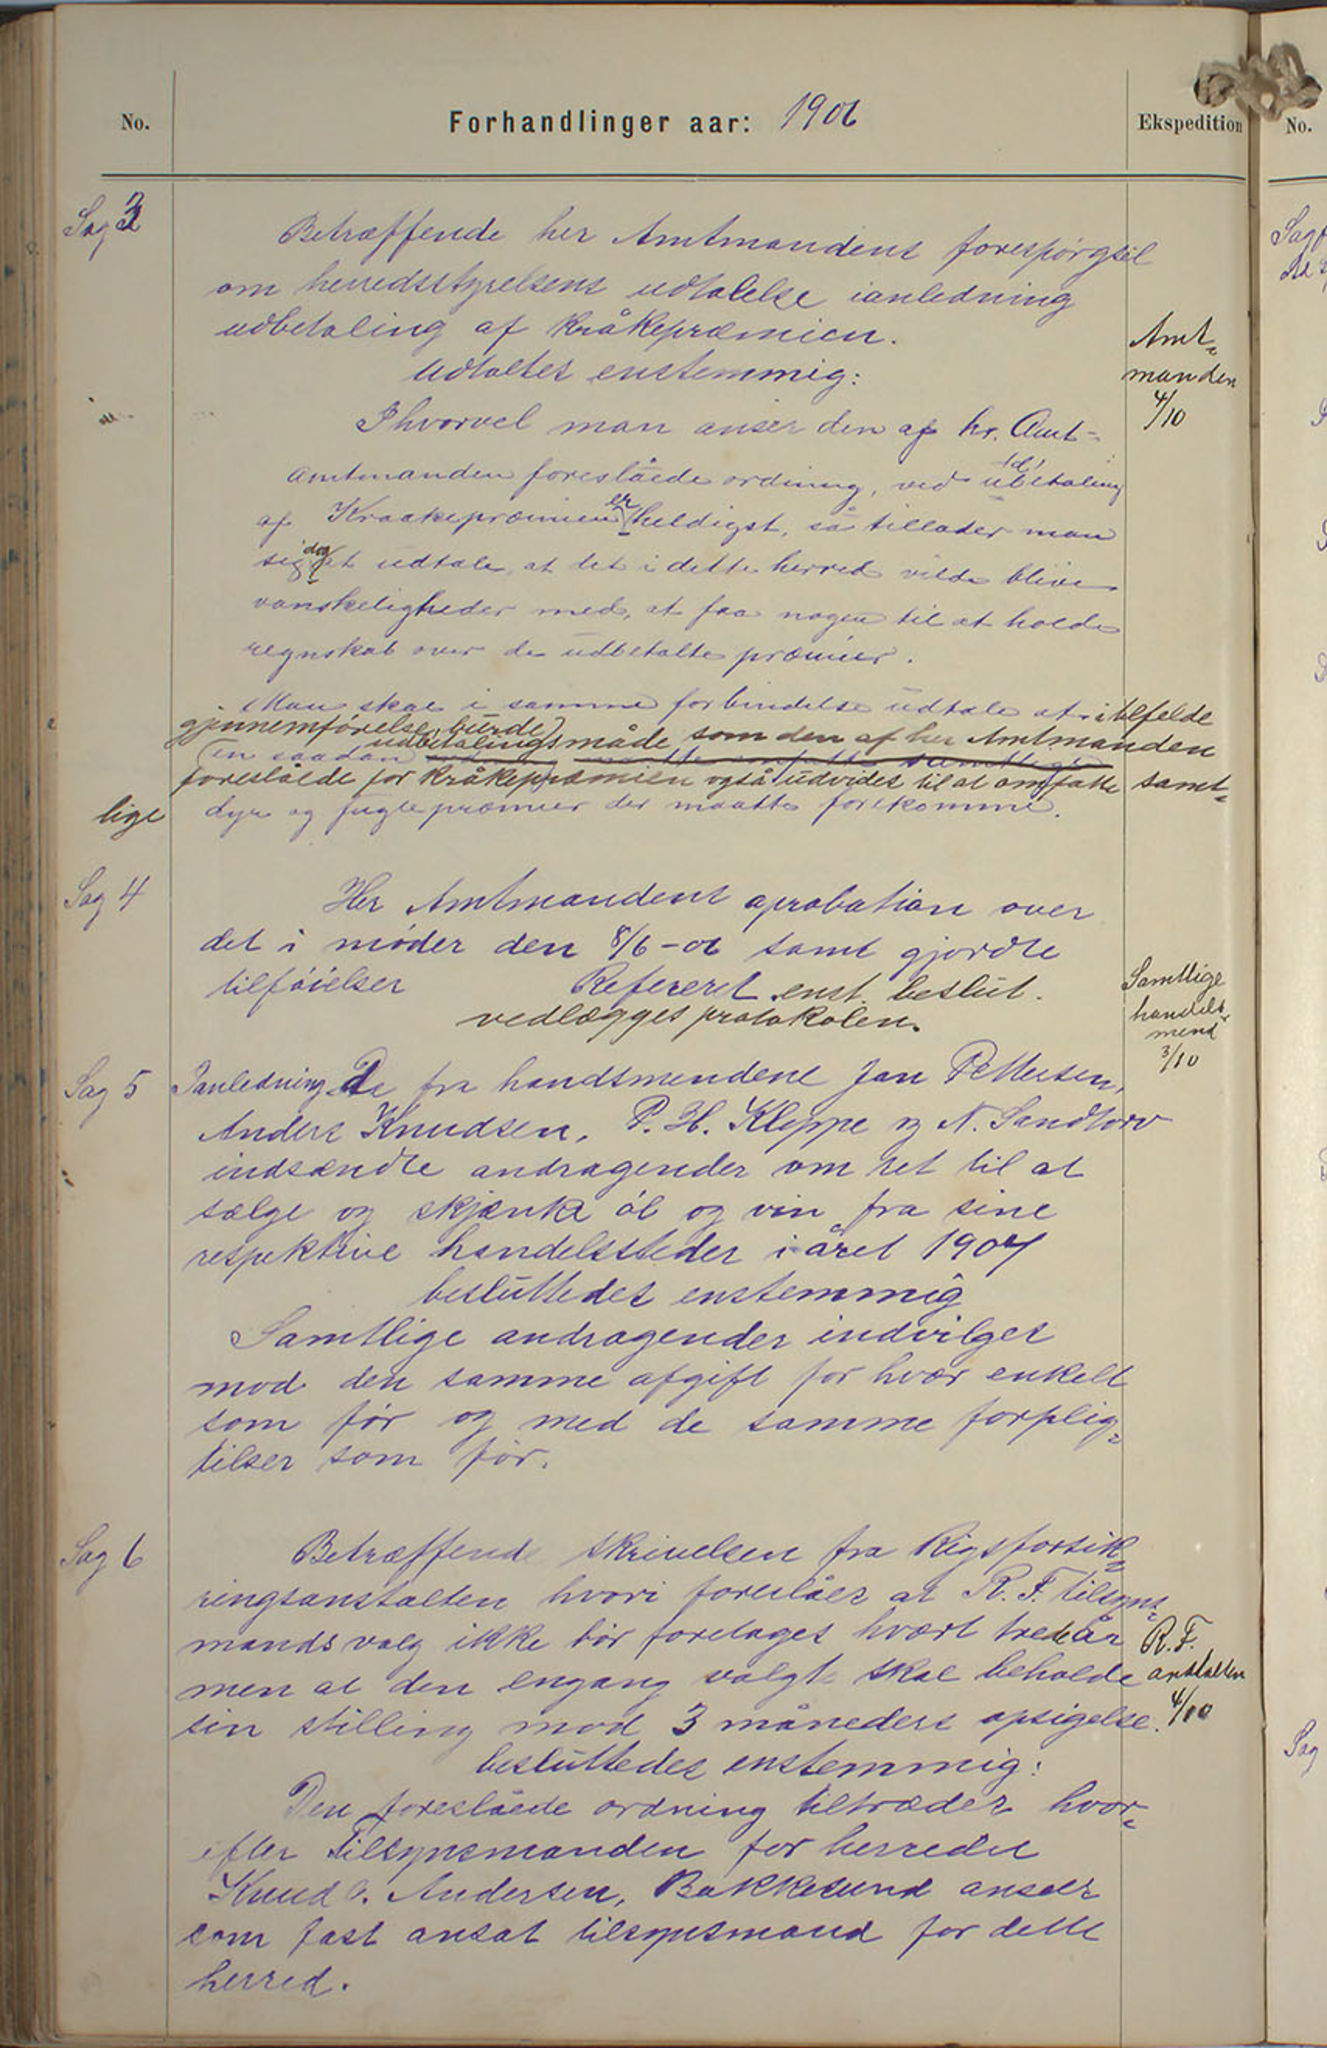 No.
Forhandlinger aar: 1906
Ekspedition
No.
Sag 3
Betræffende her Amtmandens forespörgsel
om herredsstyrelsens udtalelse ianledning
udbetaling af kråkepræmien.
Udtaltes enstemmig:
Amt-
manden
4/10
Ihvorvel man anser den af hr. Amt-
amtmanden foreslåede ordning, ved ud betaling
af Kraakepræmien er heldigst, så tillader man
sig dog at udtale, at det i dette herred vilde blive
vanskeligheder med, at faa nogen til at holde
regnskab over de udbetalte præmier.
Man skal i samme forbindelse udtale at i tilfelde
gjennemförelse, burde
en saadan udbetalingsmåde som den af her Amtmanden
foreslåede for kråkepræmien også udvides til at omfatte samt-
lige dyr og fugle præmier der maatte forekomme.
Sag 4
Her Amtmandens aprobation over
det i møder den 8/6-06 samt gjordte
tilföielser Refereret enst. beslut.
vedlægges protokolen.
Samtlige
handels-
mend
3/10
Sag 5
Ianledning De fra handsmendene Jan Pettersen,
Anders Knudsen, P. H. Kleppe og N. Sandtorv
indsændte andragender om ret til at
sælge og skjænke öl og vin fra sine
respektive handelssteder i året 1907
besluttedes enstemmig
Samtlige andragender indvilges
mod den samme afgift for hvær enkelt
som för og med de samme forplig-
tilser som för.
Sag 6
Betræffende skrivelsen fra Rigsforsik-
ringsanstalten hvori foreslåes at R. F. tilsyns-
mands valg ikke bör foretages hvært tredeår
men at den engang valgte skal beholde
sin stilling mod 3 måneders opsigelse.
R. F.
anstalten
4/10
besluttedes enstemmig:
Den foreslåede ordning tiltrædes hvor-
efter tilsynsmanden for herredet
Knud Andersen, Bakkesund ansees
som fast ansat tilsynsmand for dette
herred.
Sag
Sag